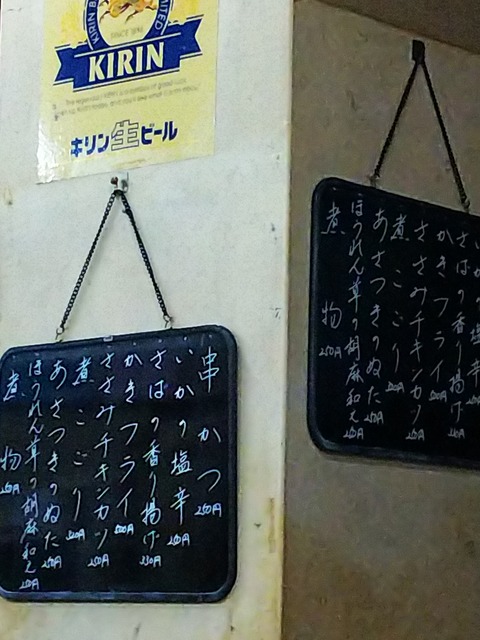 KIRIN
キリン生ビール
串かつ 250円
いかの塩辛 250円
さばの香り揚げ 230円
かきフライ 500円
ささみチキンカツ 250円
煮こごり 320円
あさつきのぬた 250円
ほうれん草の胡麻和え 250円
煮物 250円
さばの香り揚げ
かきフライ
ささみチキンカツ
煮こごり
あさつきのぬた 250円
ほうれん草の胡麻和え 250円
煮物 250円